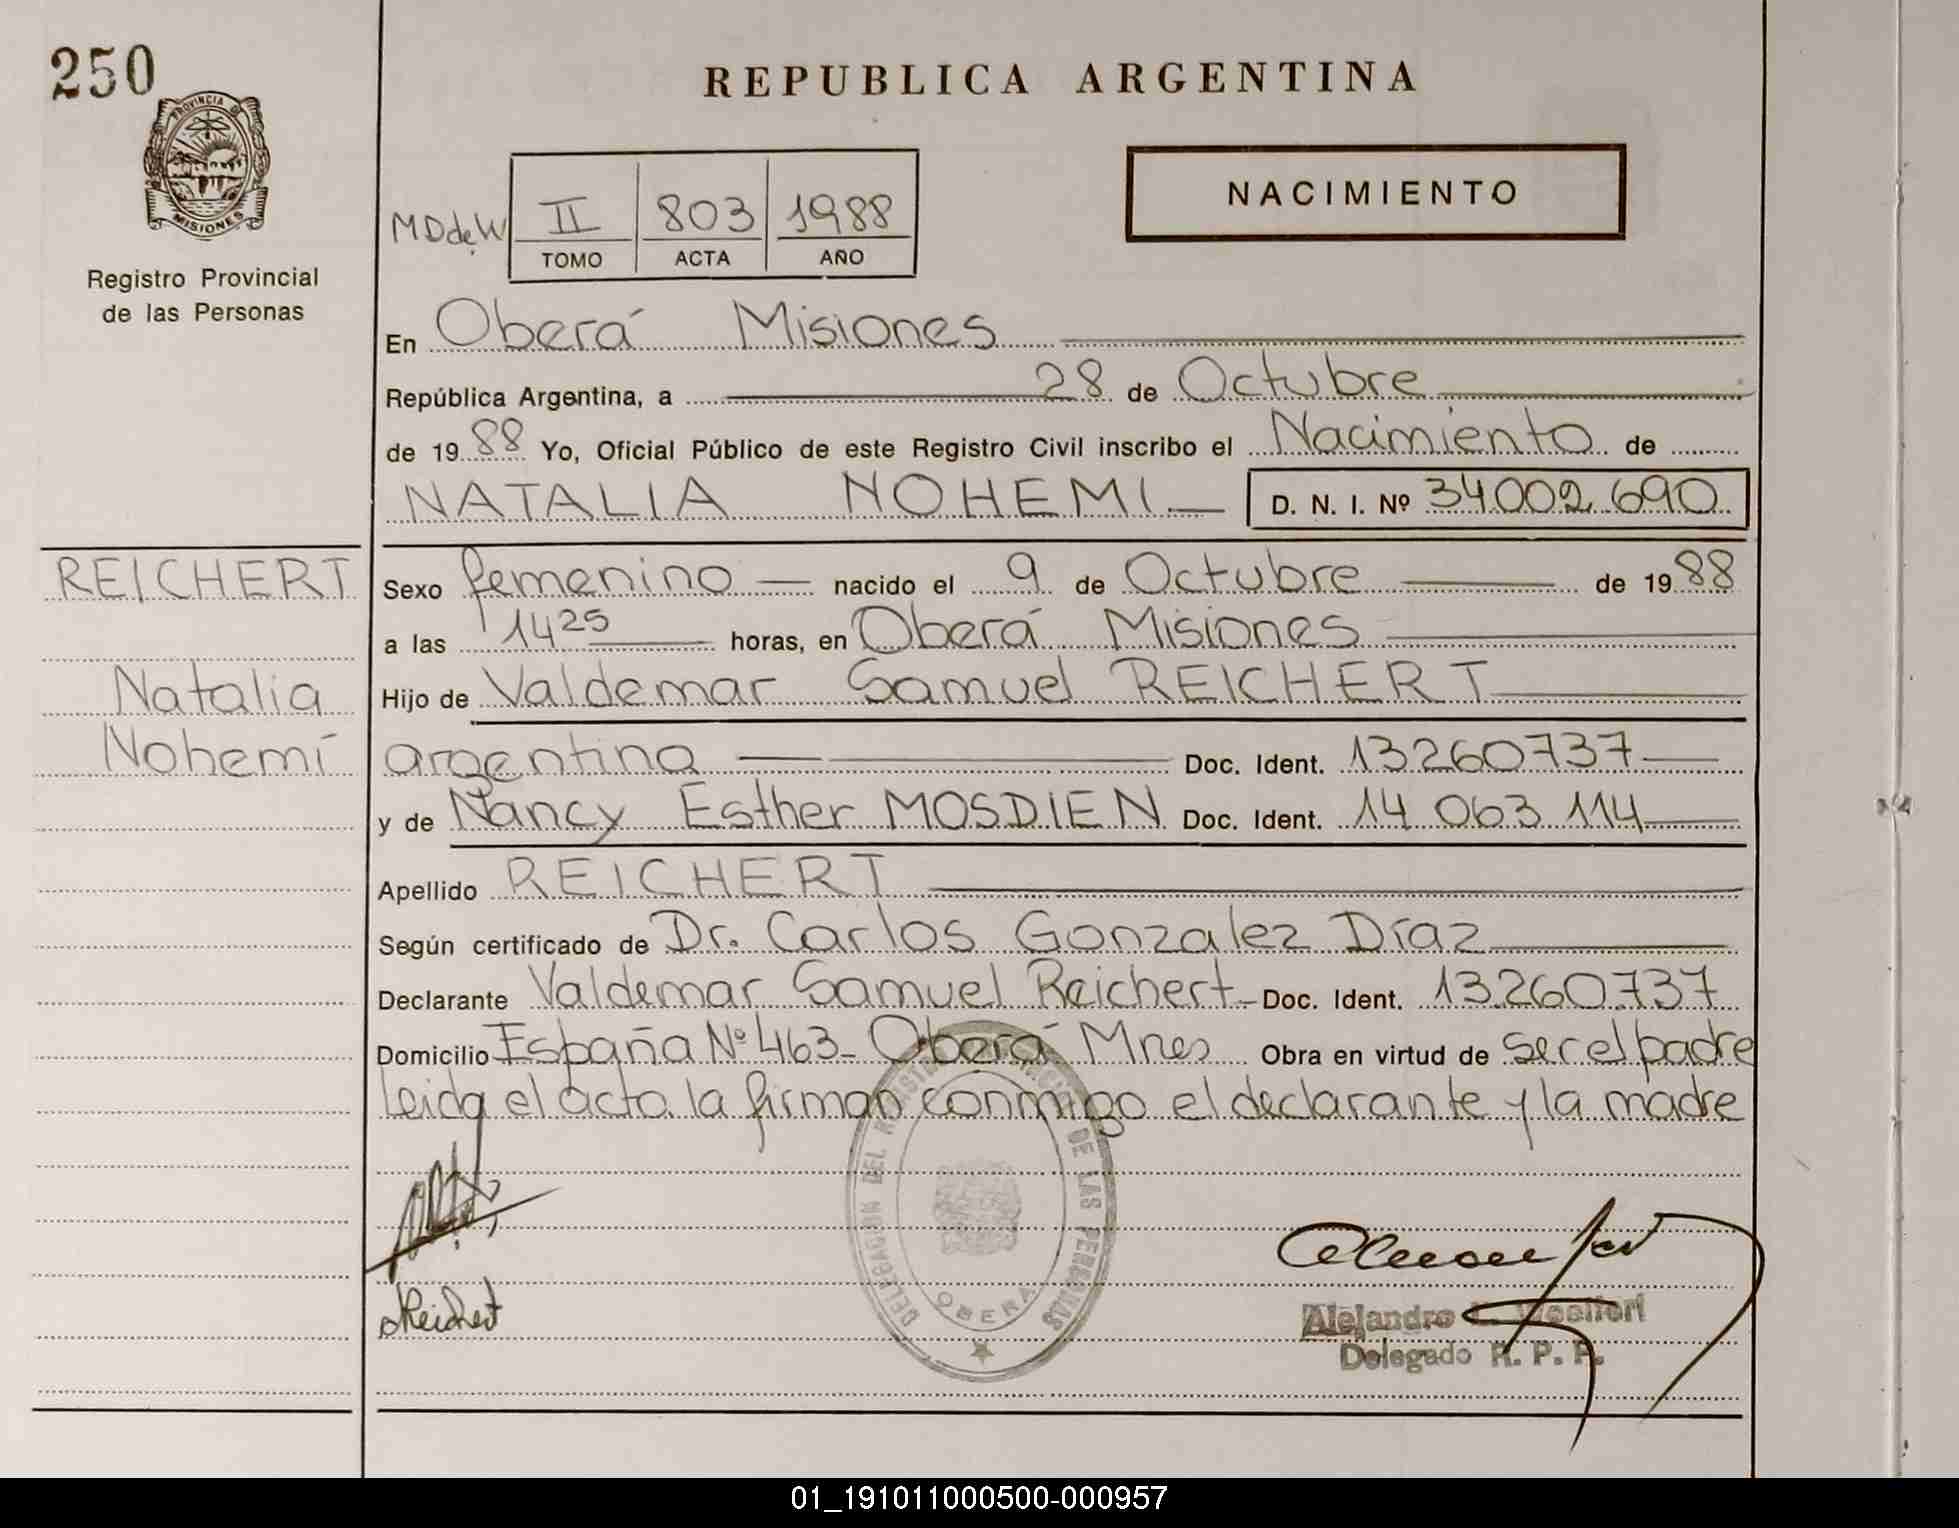 250
PROVINCIA DE
MISIONES
Registro Provincial
de las Personas
REPUBLICA ARGENTINA
NACIMIENTO
MDdeW II 803 1988
TOMO ACTA AÑO
En Oberá Misiones
República Argentina, a 28 de Octubre
de 1988 Yo, Oficial Público de este Registro Civil inscribo el Nacimiento de
NATALIA NOHEMI D. N. I. Nº 34002690
REICHERT
Natalia
Nohemí
Sexo femenino nacido el 9 de Octubre de 1988
a las 1425 horas, en Oberá Misiones
Hijo de Valdemar Samuel REICHERT
argentina Doc. Ident. 13260737
y de Nancy Esther MOSDIEN Doc. Ident. 14 063 114
Apellido REICHERT
Según certificado de Dr. Carlos Gonzalez Díaz
Declarante Valdemar Samuel Reichert Doc. Ident. 13260737
Domicilio España Nº 463 Oberá Mnes Obra en virtud de ser el padre
Leida el acta la firman conmigo el declarante y la madre
DELEGACION DEL DE LAS PERSONAS
OBERA
Reichert
Alejandro
Delegado R. P. P.
01_191011000500-000957